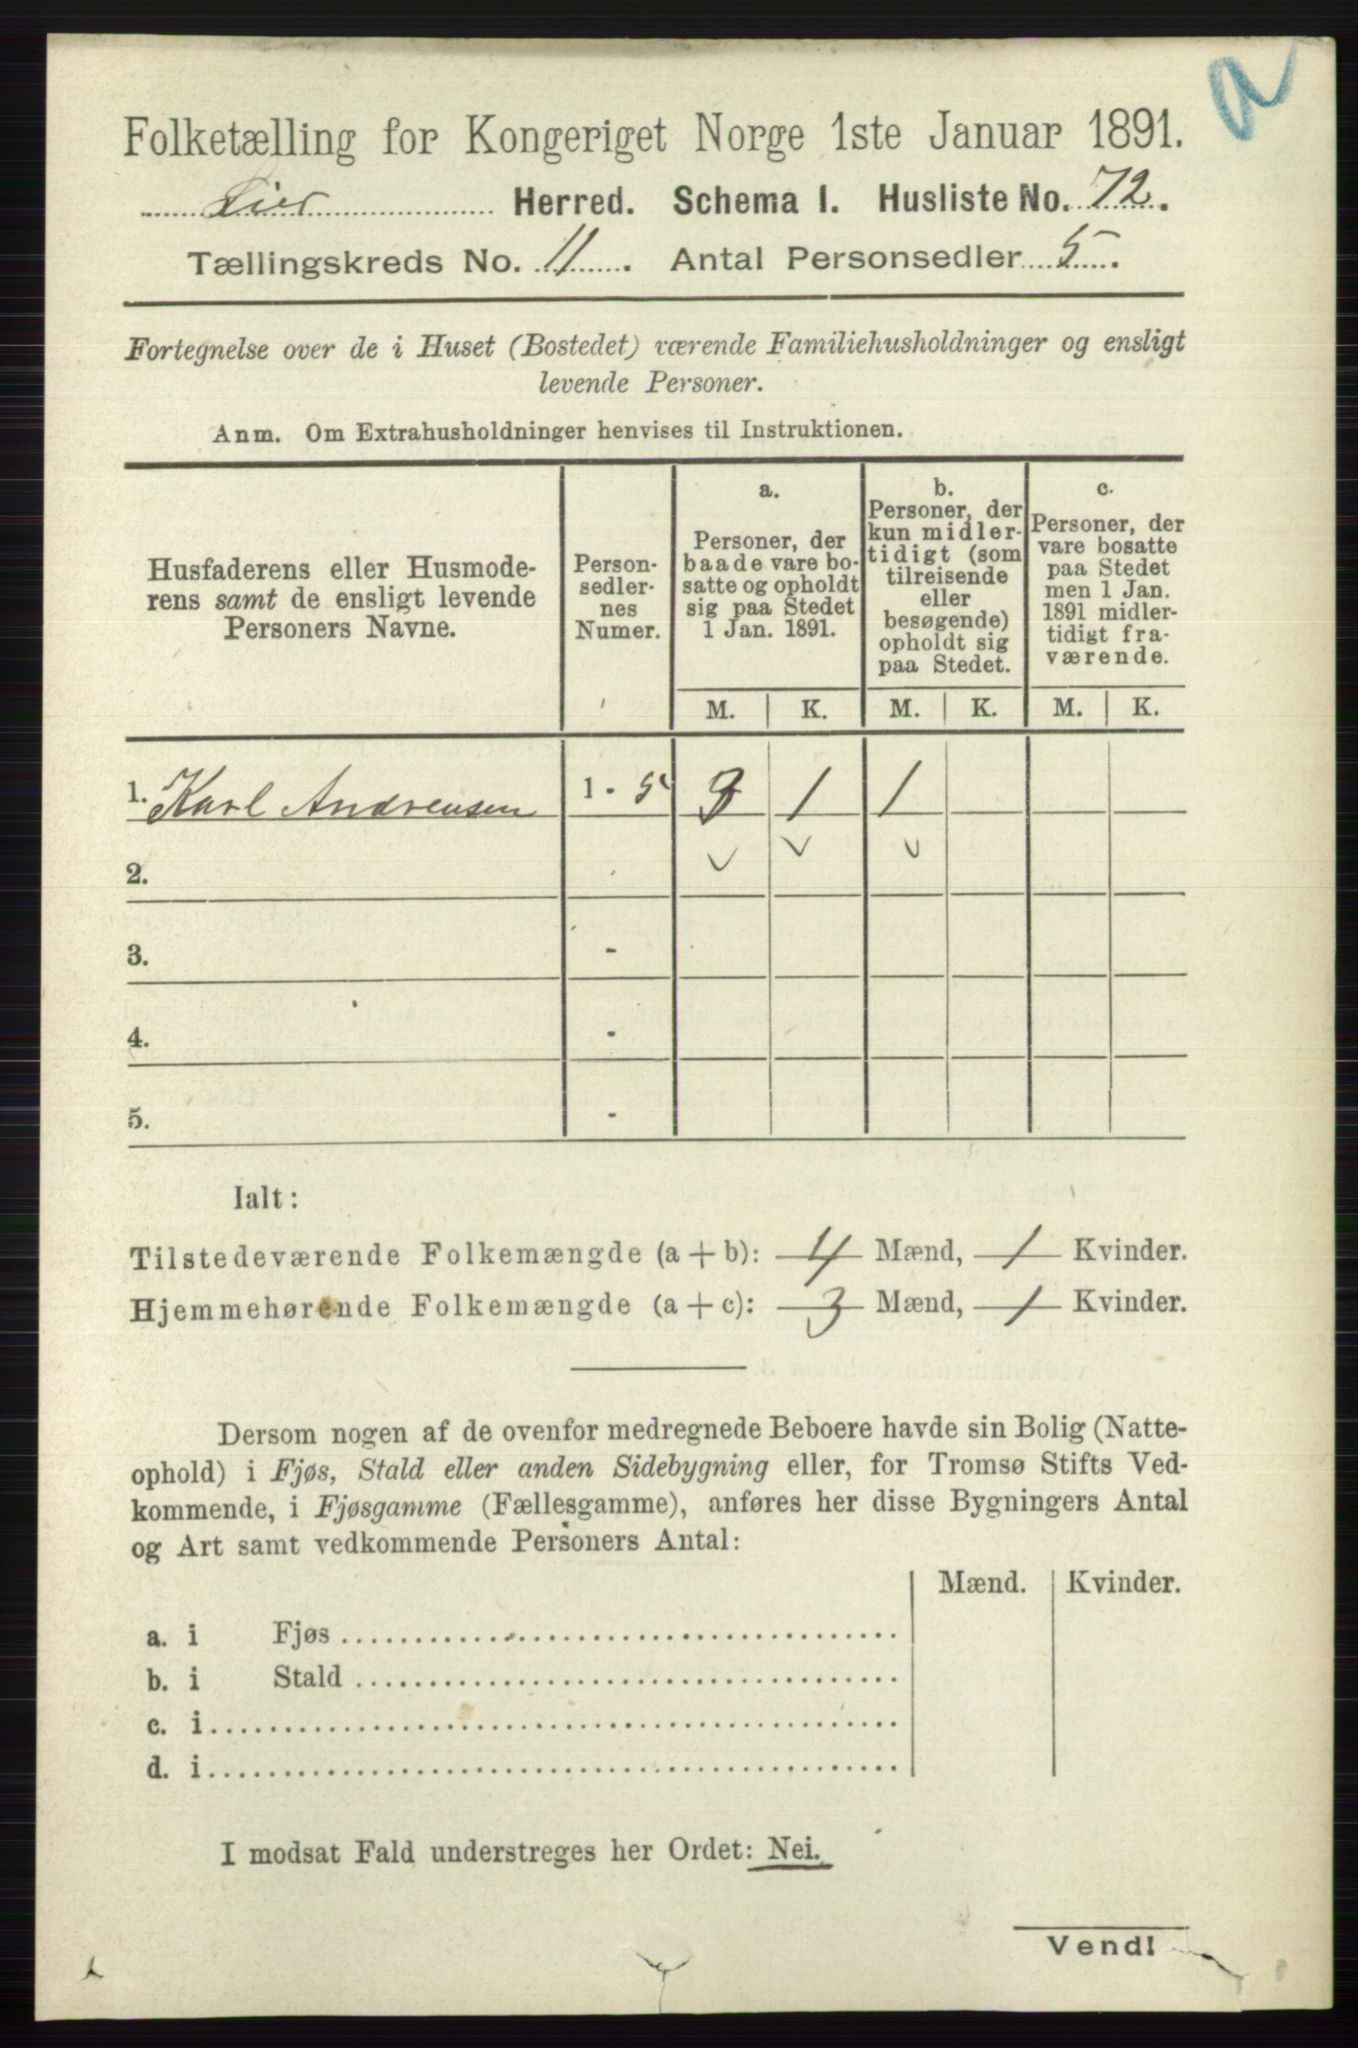 a
Folketælling for Kongeriget Norge 1ste Januar 1891.
Lier Herred. Schema I. Husliste No. 72.
Tællingskreds No. 11. Antal Personsedler 5.
Fortegnelse over de i Huset (Bostedet) værende Familiehusholdninger og ensligt
levende Personer.
Anm. Om Extrahusholdninger henvises til Instruktionen.
Husfaderens eller Husmode-
rens samt de ensligt levende
Personers Navne.
Person-
sedler-
nes
Numer.
a.
Personer, der
baade vare bo-
satte og opholdt
sig paa Stedet
1 Jan. 1891.
b.
Personer, der
kun midler-
tidigt (som
tilreisende
eller
besøgende)
opholdt sig
paa Stedet.
c.
Personer, der
vare bosatte
paa Stedet
men 1 Jan.
1891 midler-
tidigt fra-
værende.
M. K. M. K. M. K.
1. Karl Andrensen 1 - 5 3 1 1
2. -
3. -
4. -
5. -
Ialt:
Tilstedeværende Folkemængde (a + b): 4 Mænd, 1 Kvinder.
Hjemmehørende Folkemængde (a + c): 3 Mænd, 1 Kvinder.
Dersom nogen af de ovenfor medregnede Beboere havde sin Bolig (Natte-
ophold) i Fjøs, Stald eller anden Sidebygning eller, for Tromsø Stifts Ved-
kommende, i Fjøsgamme (Fællesgamme), anføres her disse Bygningers Antal
og Art samt vedkommende Personers Antal:
Mænd. Kvinder.
a. i Fjøs
b. i Stald
c. i
d. i
I modsat Fald understreges her Ordet: Nei.
Vend!